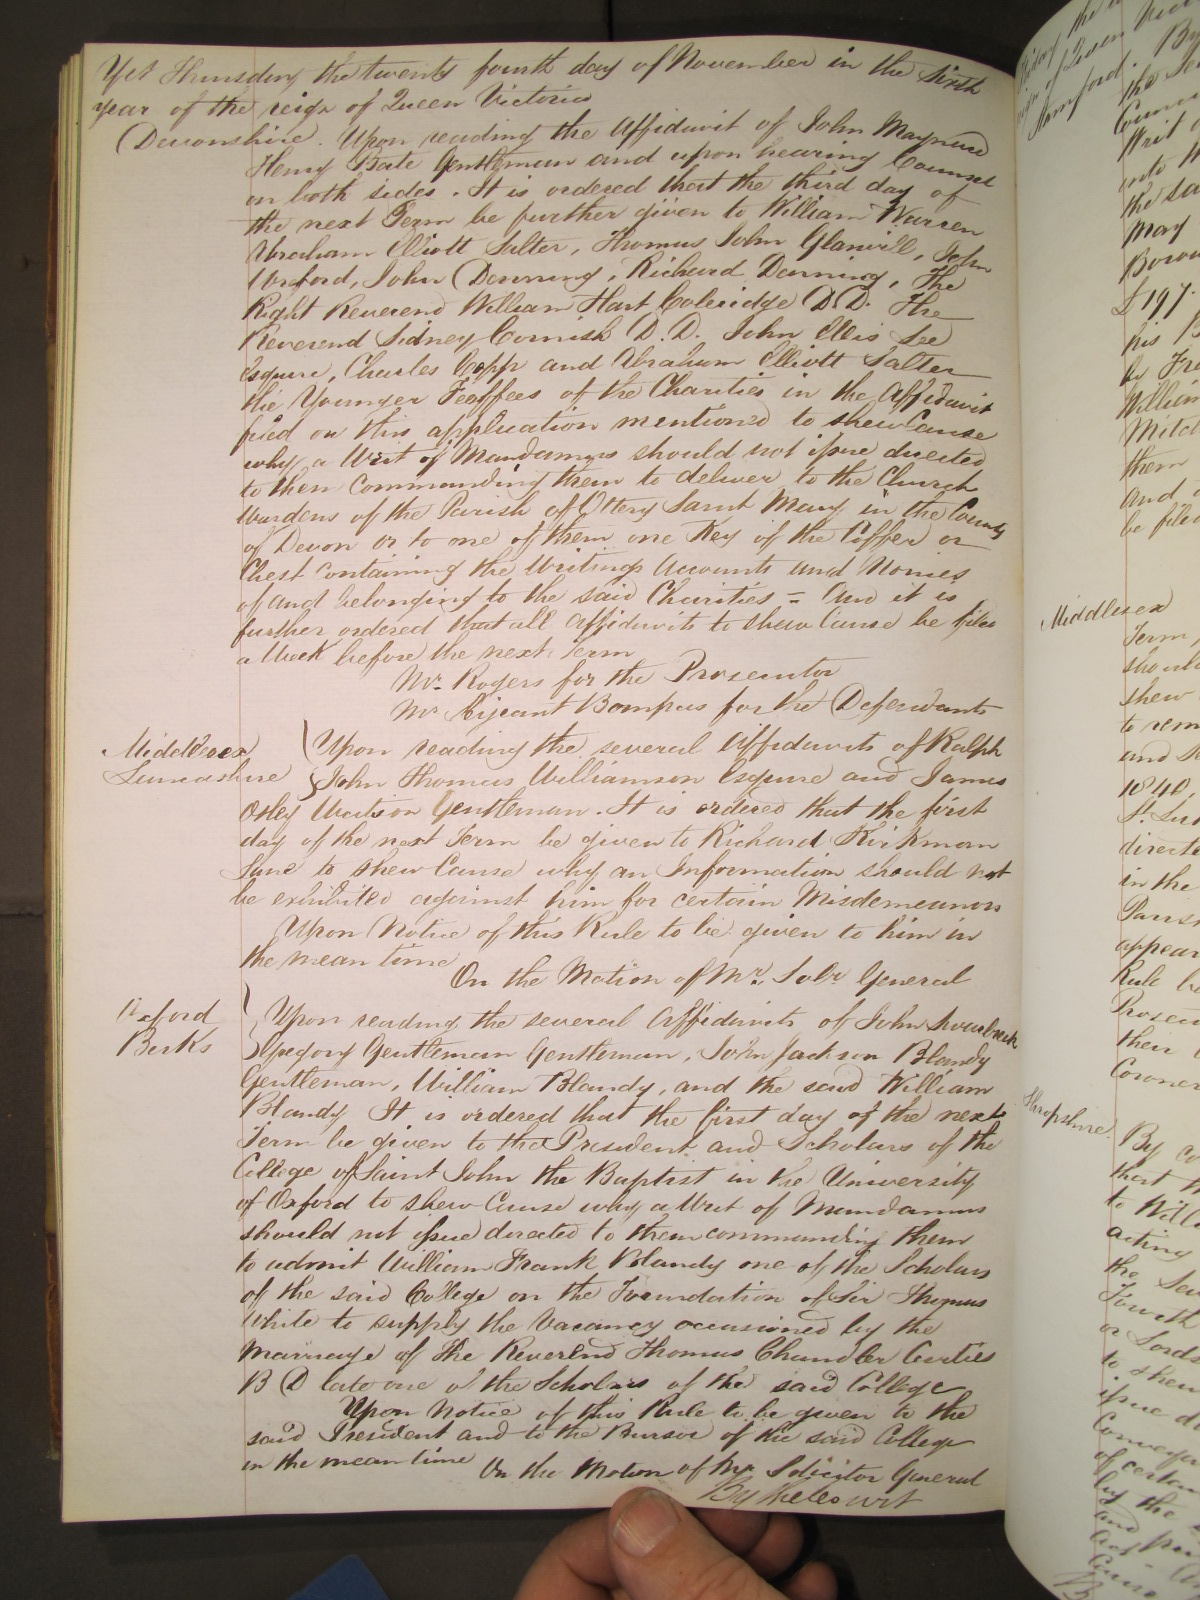 Yet Thursday the twenty fourth day of November in the sixth
year of the reign of Queen Victoria
Devonshire. Upon reading the Affidavit of John Maynard
Henry Bate Gentleman and upon hearing Counsel
on both sides. It is ordered that the third day of
the next Term be further given to William Warren
Abraham Elliott Salter, Thomas John Glanvill, John
John Denning, Richard Denning, The
Right Reverend William Hart Coleridge D.D. The
Reverend Sidney Cornish D.D. John Ellis Lee
Esquire, Charles Copp and Abraham Elliott Salter
the Younger Feoffees of the Charities in the Affidavit
filed on this application mentioned to shew Cause
why a Writ of Mandamus should not issue directed
to them Commanding them to deliver to the Church
wardens of the Parish of Ottery Saint Mary in the County
of Devon or to one of them one Key of the Coffer or
Chest containing the Writings Accounts and Monies
of and belonging to the said Charities = And it is
further ordered that all affidavits to shew Cause be filed
a Week before the next Term
Mr. Rogers for the Prosecutor
Mr Serjeant Bompas for the Defendants
Middlesex
Lancashire
Upon reading the several Affidavits of Ralph
John Thomas Williamson Esquire and James
Otley Watson Gentleman. It is ordered that the first
day of the next Term be given to Richard Kirkman
Lane to shew Cause why an Information should not
be exhibited against him for certain Misdemeanors
Upon Notice of this Rule to be given to him in
the mean time
On the Motion of Mr. Solr. General
Oxford
Berks
Upon reading the several Affidavits of John
Gregory Gentleman Gentleman, John Jackson Blandy
Gentleman, William Blandy, and the said William
Blandy It is ordered that the first day of the next
Term be given to the President and Scholars of the
College of Saint John the Baptist in the University
of Oxford to shew Cause why a Writ of Mandamus
should not issue directed to them commanding them
to admit William Frank Blandy one of the Scholars
of the said College on the Foundation of Sir Thomas
White to supply the Vacancy occasioned by the
Marriage of the Reverend Thomas Chandler Curties
B D late one of the Scholars of the said College
Upon Notice of this Rule to be given to the
said President and to the Bursar of the said College
in the mean time
On the Motion of Mr Solicitor General
By the Court
Middlesex
Shropshire